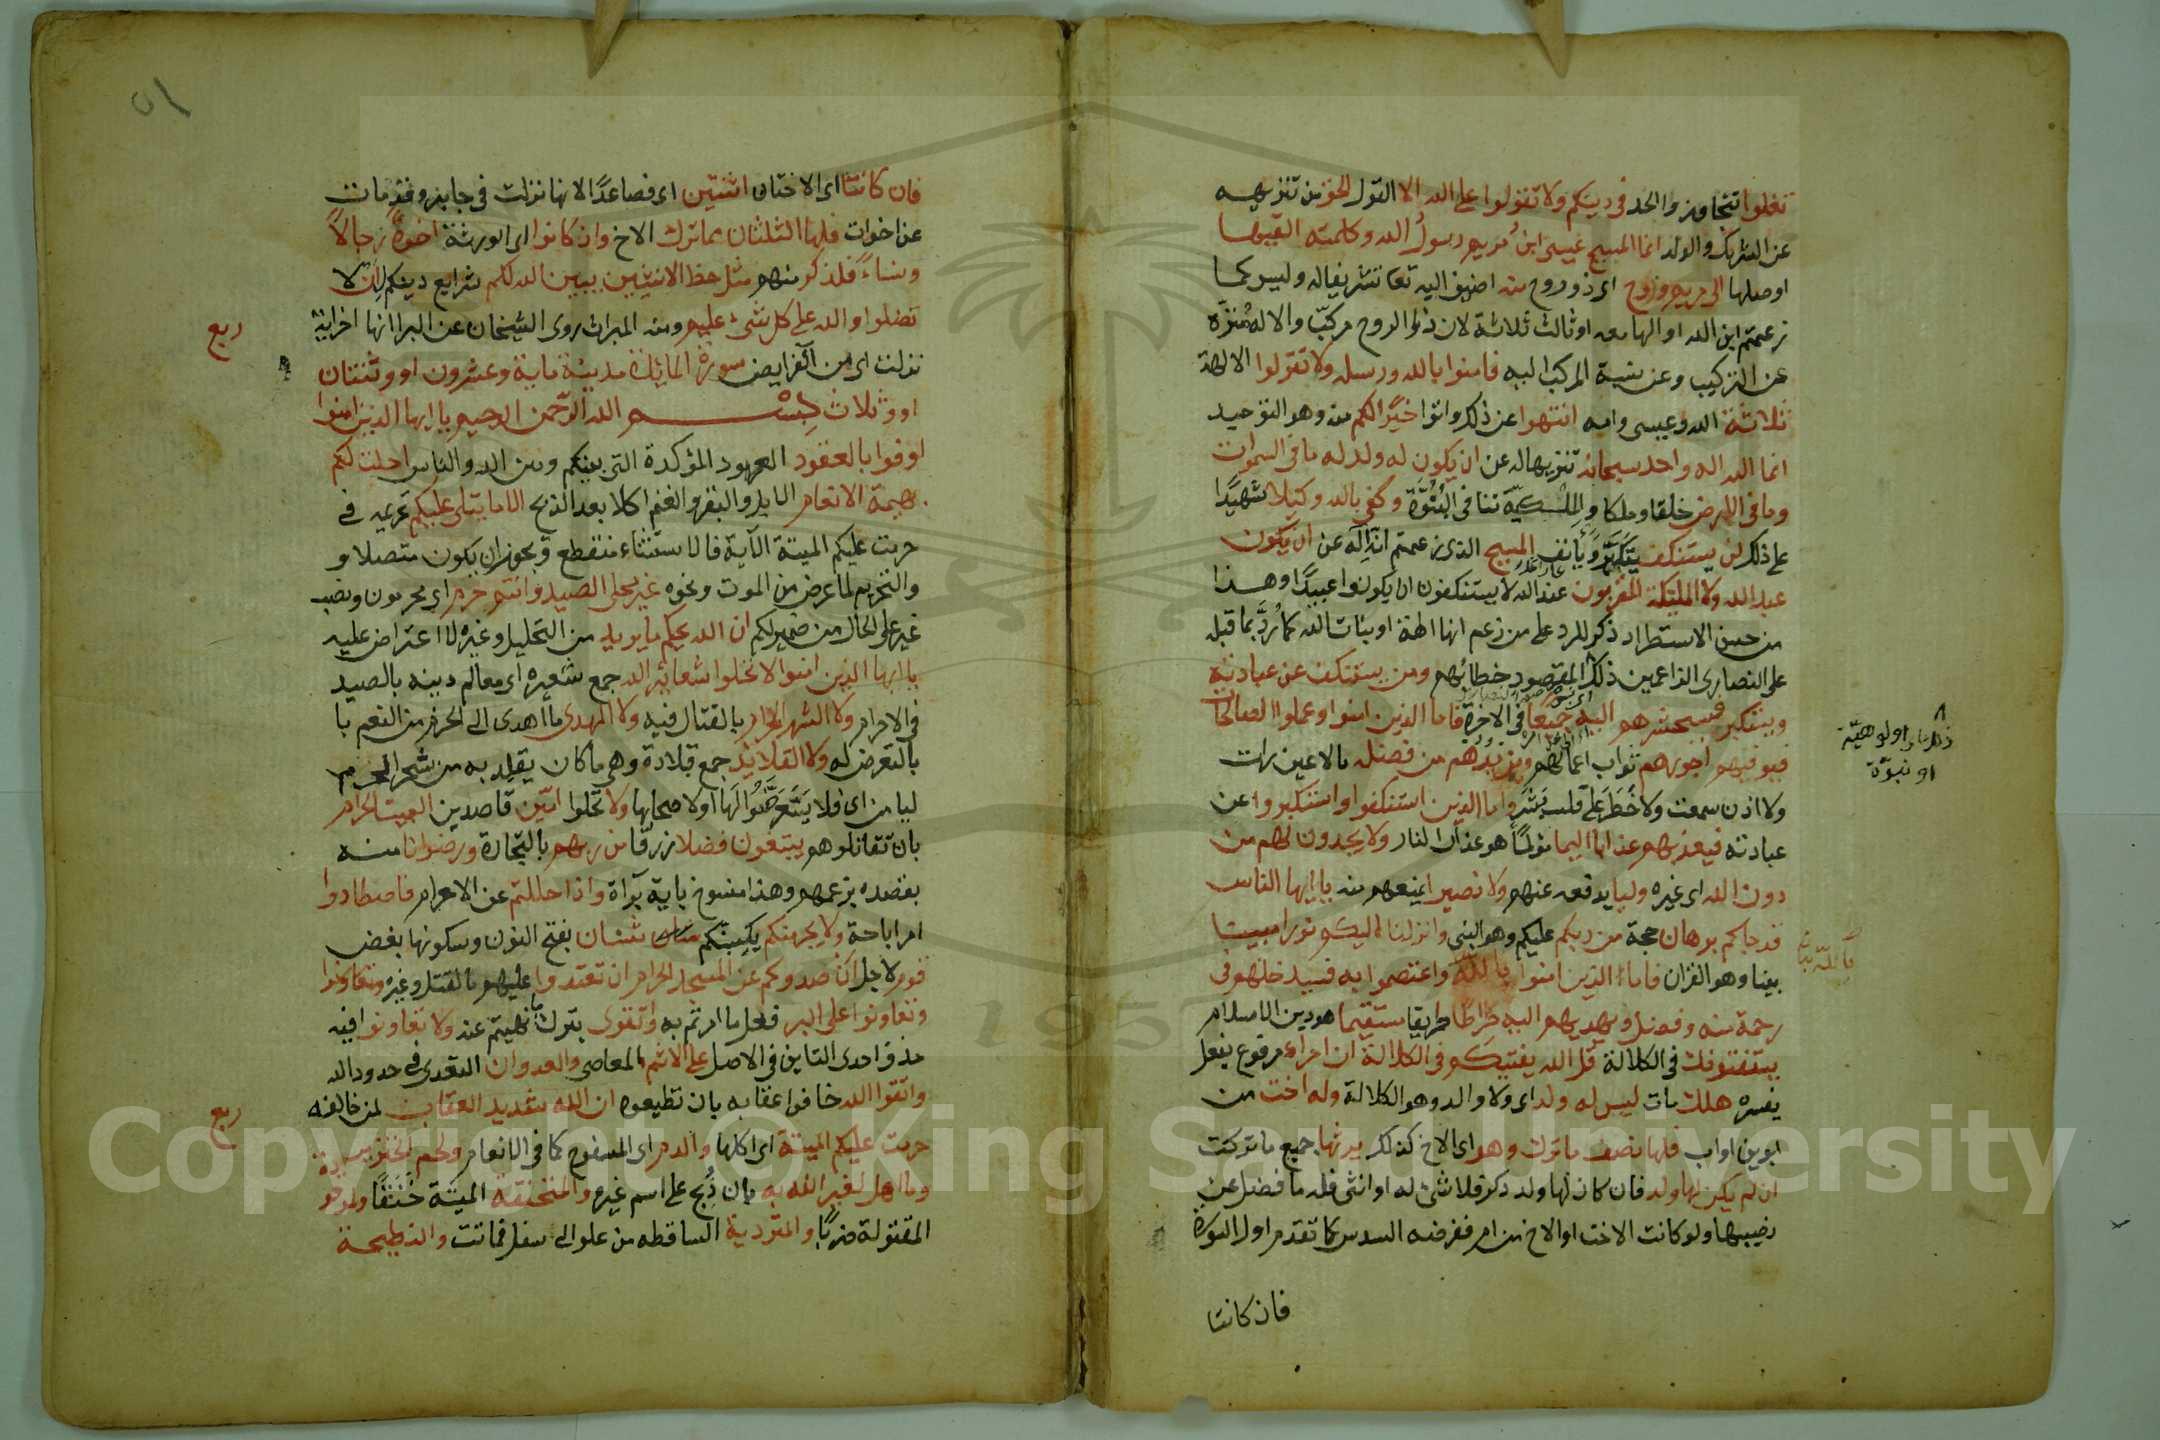 تغلوا تتجاوزوا الحد في دينكم ولا تقولوا على الله الا القول الحق من تنزيهه
عن الشريك والولد انما المسيح عيسى ابن مريم رسول الله وكلمته القيها
اوصلها الى مريم وروح اى ذو روح منه اضيف اليه تعا تشريفا له وليس كما
زعمتم ابن الله او الها معه او ثالث ثلاثة لان ذا الروح مركب والاله منزه
عن التركيب وعن نسبة المركب اليه فامنوا بالله ورسله ولا تقولوا الالهة
ثلاثة الله وعيسى وامه انتهوا عن ذلك واتوا خيرا لكم منه وهو التوحيد
انما الله اله واحد سبحانه تنزيها له عن ان يكون له ولد له ما في السموات
وما في الارض خلقا وملكا والملكية تنافى البنوة وكفى بالله وكيلا شهيدا
على ذلك لن يستنكف يتكبر ويأنف المسيح الذى زعمتم انه اله عن ان يكون
عبدا لله ولا الملئكة المقربون عند الله لا يستنكفون ان يكونوا عبيدا وهذا
من حسن الاستطراد ذكر للرد على من زعم انها الهة او بنات الله كما رد بما قبله
على النصارى الزاعمين ذلك المقصود خطابهم ومن يستنكف عن عبادته
ويستكبر فسيحشرهم اليه جميعا في الاخرة فاما الذين امنوا وعملوا الصالحات
فيوفيهم اجورهم ثواب اعمالهم ويزيدهم من فضله مالا عين رات
ولا اذن سمعت ولا خطر على قلب بشر واما الذين استنكفوا واستكبروا عن
عبادته فيعذبهم عذابا اليما مؤلما هو عذاب النار ولا يجدون لهم من
دون الله اى غيره وليا يدفعه عنهم ولا نصيرا يمنعهم منه يا ايها الناس
قد جاكم برهان حجة من ربكم عليكم وهو النبي وانزلنا اليكم نورا مبينا
بينا وهو القران فاما الذين امنوا بالله واعتصموا به فسيدخلهم في
رحمة منه وفضل ويهديهم اليه صراطا طريقا مستقيما هو دين الاسلام
يستفتونك في الكلالة قل الله يفتيكم في الكلالة ان امراء مرفوع بفعل
يفسره هلك مات ليس له ولد اى ولا والد وهو الكلالة وله اخت من
ابوين او اب فلها نصف ما ترك وهو اى الاخ كذلك يرثها جميع ما تركت
ان لم يكن لها ولد فان كان لها ولد ذكر فلا شئ له او انثى فله ما فضل عن
نصيبها ولو كانت الاخت او الاخ من ام ففرضه السدس كما تقدم اول السورة
فان كانتا
او نبوة
فان كانتا اى الاختان اثنتين اى فصاعدا لانها نزلت في جابر وقد مات
عن اخوات فلهما الثلثان مما ترك الاخ وان كانوا اى الورثة اخوة رجالا
ونساء فللذكر منهم مثل حظ الانثيين يبين الله لكم شرايع دينكم لان لا
تضلوا والله على كل شئ عليم ومنه الميراث روى الشيخان عن البرا انها اخر اية
نزلت اى من الفرايض سورة المائدة مدنية ماية وعشرون او وثنتان
او وثلاث بسم الله الرحمن الرحيم يا ايها الذين امنوا
اوفوا بالعقود العهود المؤكدة التى بينكم وبين الله والناس احلت لكم
بهيمة الانعام الابل والبقر والغنم اكلا بعد الذبح الا ما يتلى عليكم تحريمه في
حرمت عليكم الميتة الآية فالاستثناء منقطع ويجوز ان يكون متصلا و
والتحريم لما عرض من الموت ونحوه غير محلى الصيد وانتم حرم اى محرمون ونصب
غير على الحال من ضمير لكم ان الله يحكم ما يريد من التحليل وغيره لا اعتراض عليه
يا ايها الذين امنوا لا تحلوا شعائر الله جمع شعيره اى معالم دينه بالصيد
في الاحرام ولا الشهر الحرام بالقتال فيه ولا الهدى ما اهدى الى الحرم من النعم با
بالتعرض له ولا القلائد جمع قلادة وهى ما كان يقلد به من شجر الحرم
ليامن اى فلا يتعرضوا لها او لاصحابها ولا تحلوا امين قاصدين البيت الحرام
بان تقاتلوهم يبتغون فضلا رزقا من ربهم بالتجارة ورضوانا منه
بقصده بزعمهم وهذا منسوخ باية براة واذا حللتم عن الاحرام فاصطادوا
امر اباحة ولا يجرمنكم يكسبنكم شنان بفتح النون وسكونها بغض
قوم لاجل ان صدوكم عن المسجد الحرام ان تعتدوا عليهم بالقتل وغيره وتعاونوا
وتعاونوا على البر فعل ما امرتم به والتقوى بترك ما نهيتم عنه ولا تعاونوا فيه
حذف احدى التاين في الاصل على الاثم المعاصى والعدوان التعدى في حدود الله
واتقوا الله خافوا عقابه بان تطيعوه ان الله شديد العقاب لمن خالفه
حرمت عليكم الميتة اى اكلها والدم اى المسفوح كما في الانعام ولحم الخنزير
وما اهل لغير الله به بان ذبح على اسم غيره والمنخنقة الميتة خنقا والموقو
المقتولة ضربا والمتردية الساقطه من علو الى سفل فماتت والنطيحة
ربع
ربع
٥١
Copyright © King Saud University
1957